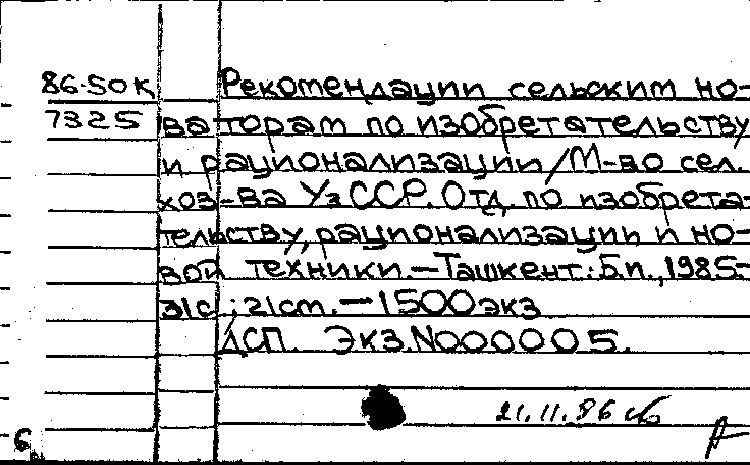 86-50К Рекомендации сельским но-
7325 ваторам по изобретательству
и рационализации/М-во сел.
хоз-ва УзССР. Отд. по изобрета-
тельству, рационализации и но-
вой техники.—Ташкент: Б.п., 1985-
31с.; 21см.—1500экз
ДСП. Экз.N000005.
21.11.86